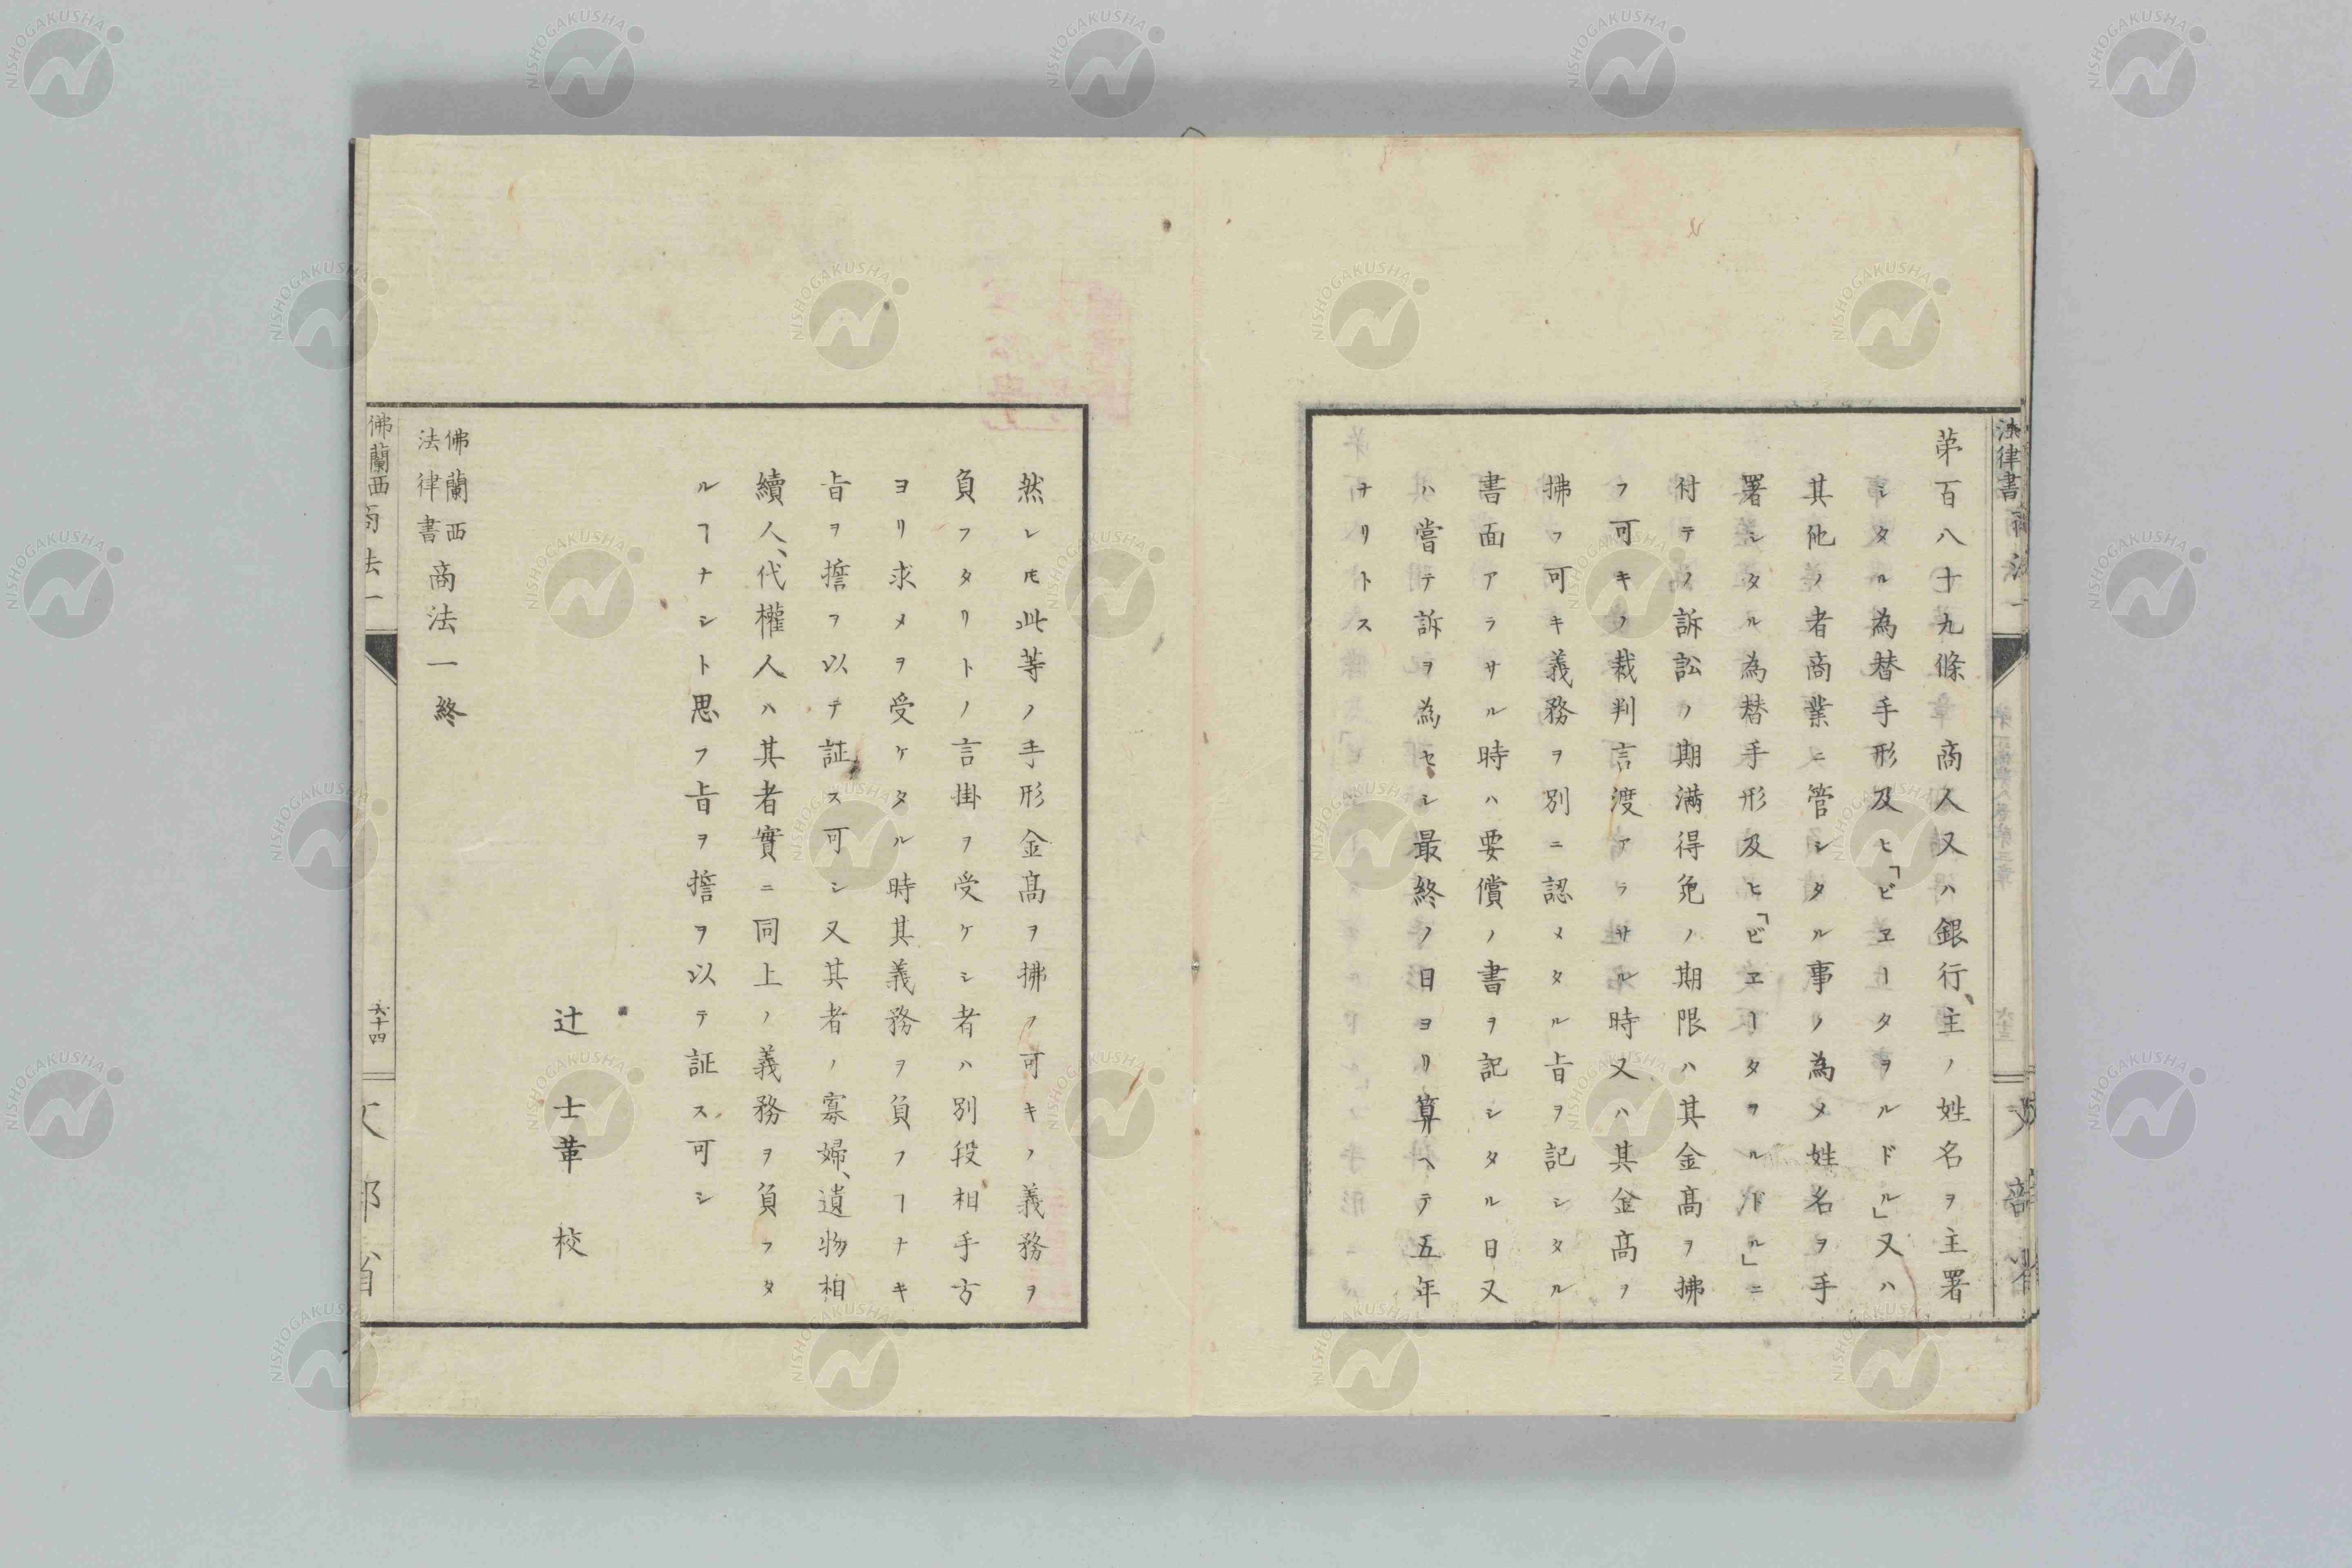 第百八十九條商人又ハ銀行、主ノ姓名ヲ主署
シタル為替手形及ヒ「ビヱータヲルドル」又ハ
其他ノ者商業ニ管シタル事ノ為メ姓名ヲ手
署シタル為替手形及ヒ「ビヱータヲルドル」ニ
付テノ訴訟ノ期満得免ノ期限ハ其金高ヲ拂
フ可キノ裁判言渡アラサル時又ハ其金高ヲ
拂フ可キ義務ヲ別ニ認メタル旨ヲ記シタル
書面アラサル時ハ要償ノ書ヲ記シタル日又
ハ嘗テ訴ヲ為セシ最終ノ日ヨリ算ヘテ五年
ナリトス
然レ𪜈此等ノ手形金高ヲ拂フ可キノ義務ヲ
負フタリトノ言掛ヲ受ケシ者ハ別段相手方
ヨリ求メヲ受ケタル時其義務ヲ負フヿナキ
旨ヲ擔ヲ以テ証ス可シ又其者ノ寡婦、遺物相
續人、代權人ハ其者實ニ同上ノ義務ヲ負フタ
ルヿナシト思フ旨ヲ擔ヲ以テ証ス可シ
辻士革校
佛蘭西法律書商法一終
佛蘭西商法一
六十四
文部省
NISHOGAKUSHA